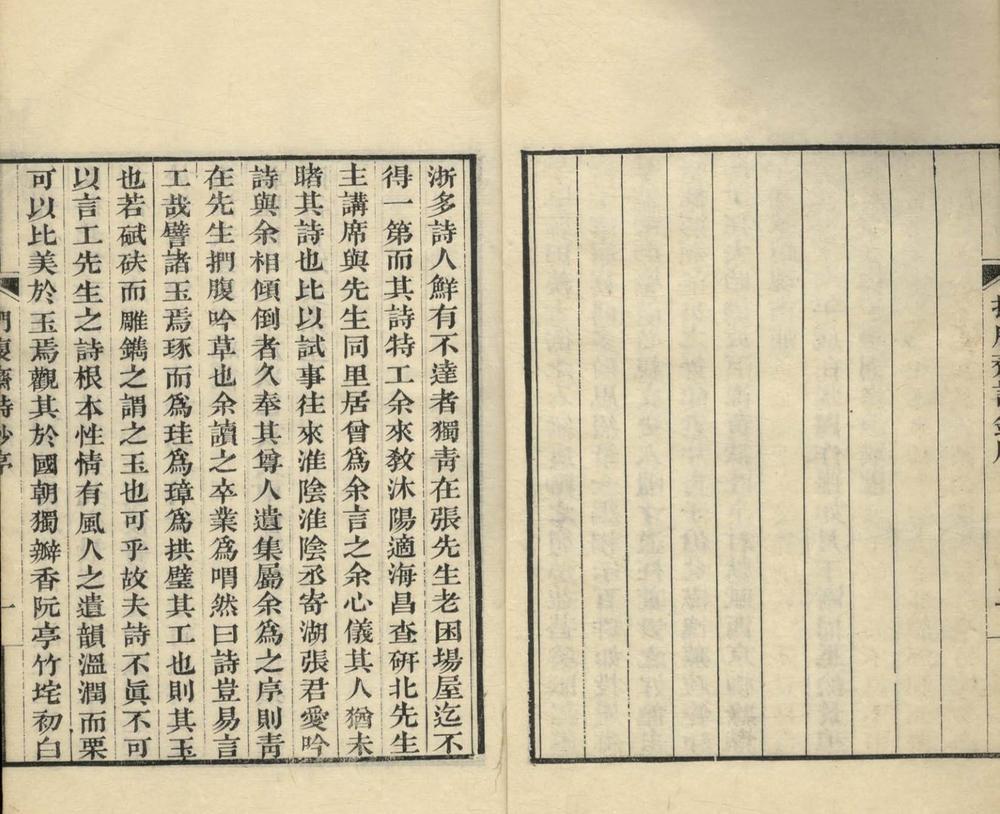 浙多詩人鮮有不達者獨靑在張先生老困場屋迄不
得一第而其詩特工余來敎沐陽適海昌查硏北先生
主講席與先生同里居曾爲余言之余心儀其人猶未
睹其詩也比以試事往來淮陰淮陰丞寄湖張君愛吟
詩與余相傾倒者久奉其尊人遺集屬余爲之序則靑
在先生捫腹吟草也余讀之卒業爲喟然曰詩豈易言
工哉譬諸玉焉琢而爲珪爲璋爲拱璧其工也則其玉
也若碔砆而雕鐫之謂之玉也可乎故夫詩不眞不可
以言工先生之詩根本性情有風人之遺韻溫潤而栗
可以比美於玉焉觀其於國朝獨瓣香阮亭竹垞初白
捫腹齋詩鈔序
一